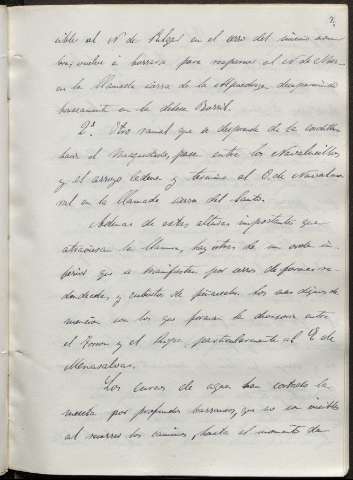 2.
al N de Pulgar en el cerro del mismo nom
bre, vuelve á para reaparecer al N de
en la llamada sierra de la desapareciendo
en la dehesa
2ª. Otro ramal que se desprende de la cordillera
hacia el pasa entre los Navalucillos
y el arroyo Cedena y termina al O. de Navalmo
ral en la llamada sierra del Santo.
Ademas de estas alturas importantes que
atraviesan la llanura, hay otras de un orden in
ferior que se manifiestan por cerros de formas re
dondeadas, y cubiertos de Los mas dignos de
mencion son los que forman la divisoria entre
el Torcon y el particularmente al E de
Menasalvas.
Los cursos de agua han cortado la
meseta por profundos barrancos, que no son visibles
al recorrer los caminos, hasta el momento de